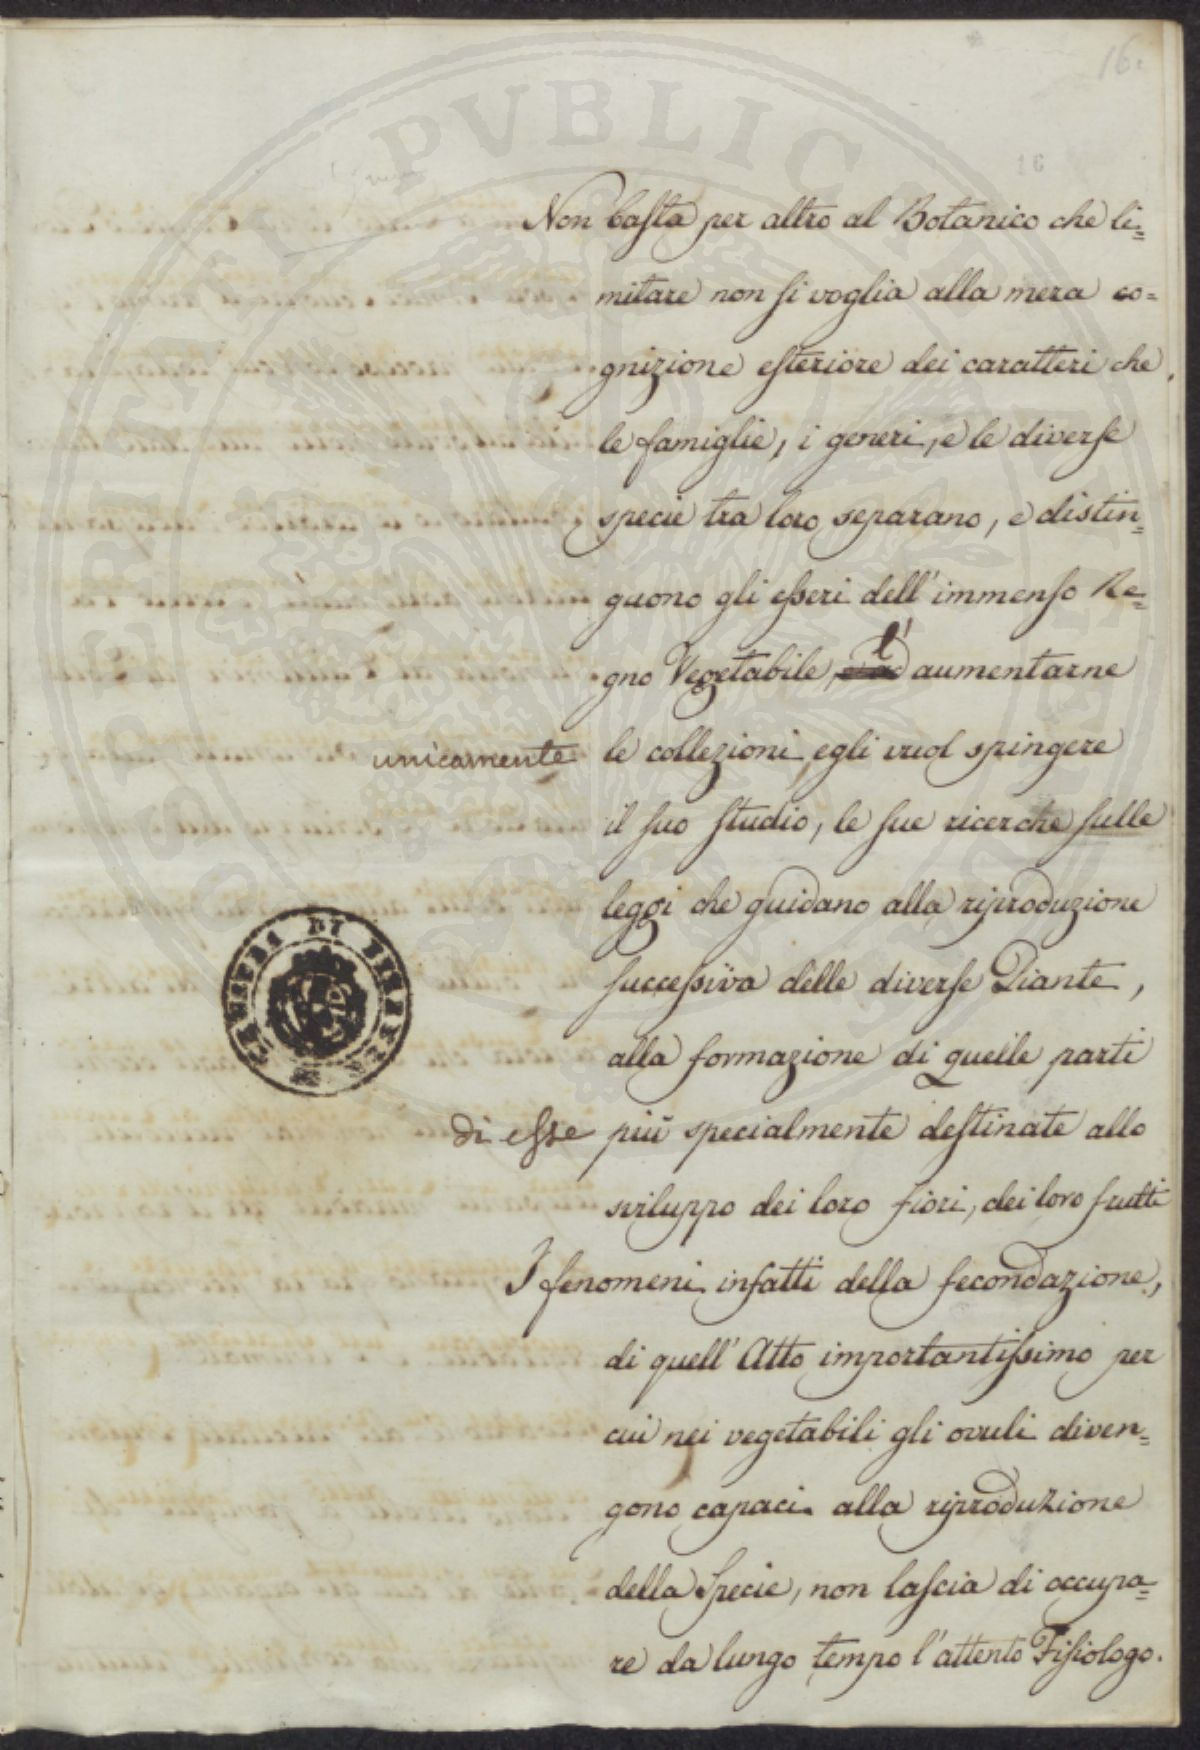 16.
16
Non basta per altro al Botanico che li=
mitare non si voglia alla mera co=
gnizione esteriore dei caratteri che
le famiglie, i generi, e le diverse
specie tra loro separano, e distin=
guono gli esseri dell'immenso Re=
gno Vegetabile, l' aumentarne
unicamente le collezioni, egli vuol spingere
il suo studio, le sue ricerche sulle
leggi che guidano alla riproduzione
successiva delle diverse Piante,
alla formazione di quelle parti
di esse più specialmente destinate allo
sviluppo dei loro fiori, dei loro frutti
I fenomeni infatti della fecondazione,
di quell' Atto importantissimo per
cui nei vegetabili gli ovuli diven=
gono capaci alla riproduzione
della Specie, non lascia di occupa=
re da lungo tempo l'attento Fisiologo.